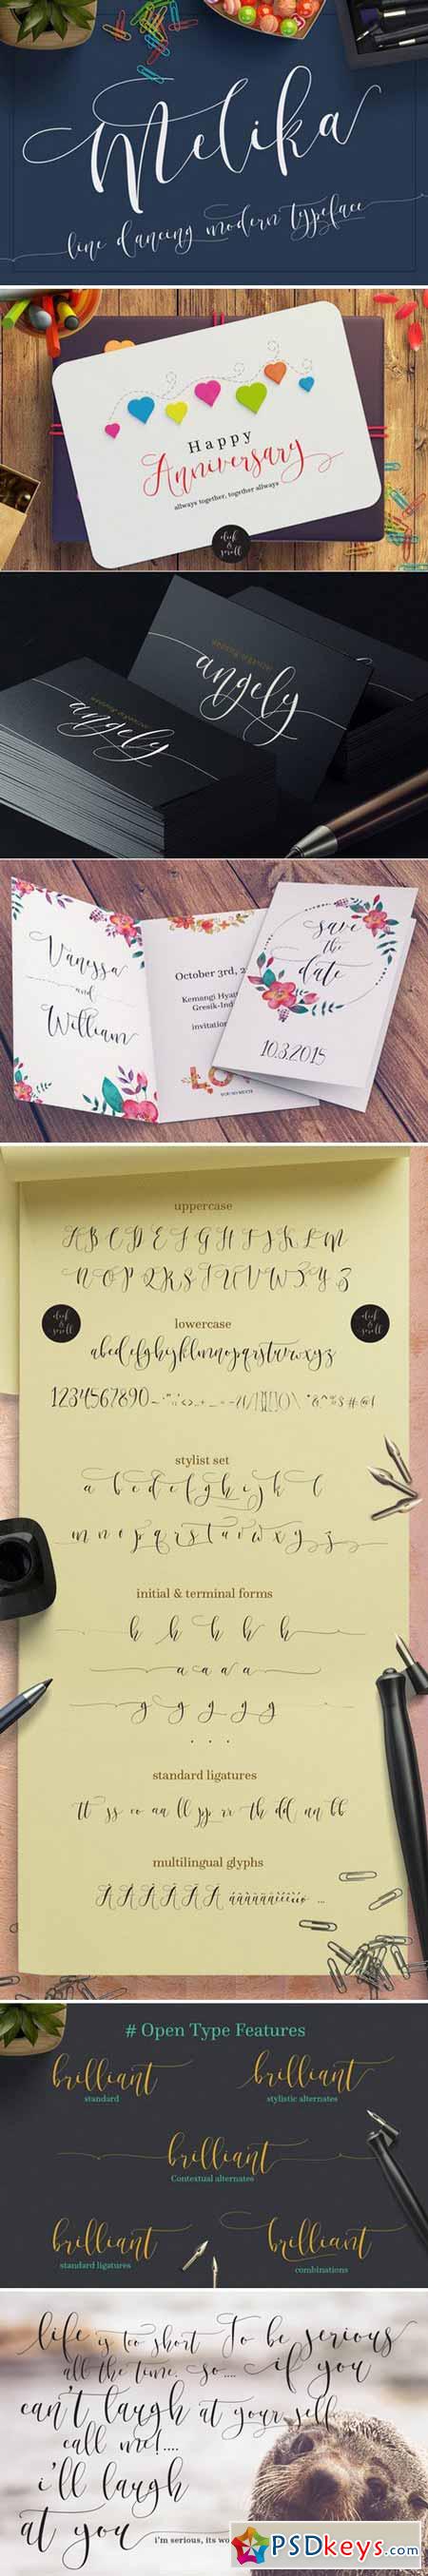 Melika
line dancing modern typeface
Happy
Anniversary
allways together, together allways
click
&
scroll
angely
angely
Vanessa
and
William
October 3rd, 2
Kemangi Hyat
Gresik-Ind
invitation
LO
save
the
date
10.3.2015
uppercase
A B C D E F G H I J K L M
N O P Q R S T U V W X Y Z
click
&
scroll
click
&
scroll
lowercase
abcdefghijklmnopqrstuvwxyz
1234567890
stylist set
a b c d e f g h i j k l
m n o p q r s t u v w x y z
initial & terminal forms
h h h h h
a a a a
g g g g g
. . .
standard ligatures
tt ss oo aa ll pp rr th dd nn bb
multilingual glyphs
# Open Type Features
brilliant
standard
brilliant
stylistic alternates
brilliant
Contextual alternates
brilliant
standard ligatures
brilliant
combinations
life is too short To be serious
all the time. So.... if you
can't laugh at your self
call me!....
i'll laugh
at you
i'm serious, its wo
PSDkeys.com